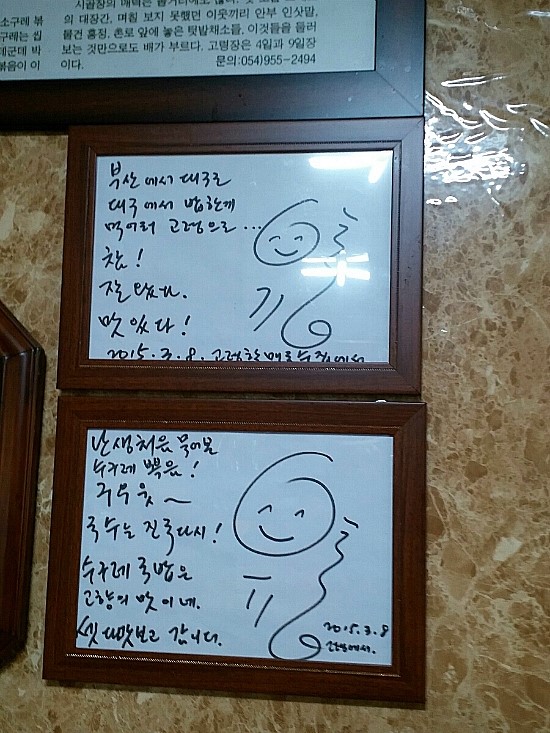 시골장의 매력은
의 대장간, 며칠 보지 못했던 이웃끼리 안부 인삿말,
소구레 볶
물건 흥정, 촌로 앞에 놓은 텃밭채소들, 이것들을 둘러
구레는 씹
보는 것만으로도 배가 부르다. 고령장은 4일과 9일장
데군데 박
이다.
문의:054)955-2494
볶음이 이
부산에서 대구로
대구에서 밥한끼
먹어러 고령으로...
참!
잘 왔다.
맛있다!
2015.3.8. 고령할매국수집에서
난생처음 먹어본
수구레 볶음!
구우웃~
국수는 진국다시!
수구레 국밥은
고향의 맛이네.
셋 다 맛보고 갑니다.
2015.3.8
고령에서.